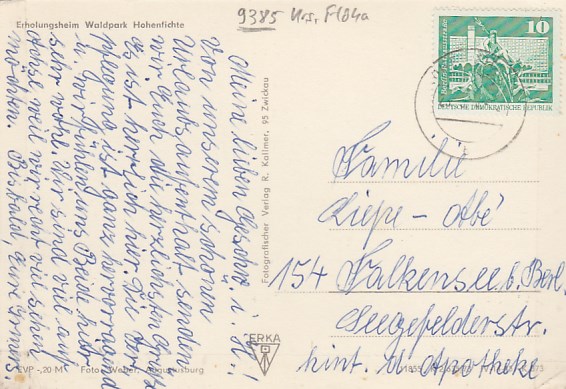 Erholungsheim Waldpark Hohenfichte
9385 Krs. Flöha
10
Berlin
DEUTSCHE DEMOKRATISCHE REPUBLIK
Meine lieben
von unserem schönen
Urlaubsaufenthalt senden
wir Euch die herzlichsten Grüße
Es ist herrlich hier. Die Ver-
pflegung ist ganz hervorragend
u. wir fühlen uns Beide hier
sehr wohl. Wir sind viel auf
Achse weil wir recht viel sehen
möchten. Bis bald,
Fotografischer Verlag R. Kallmer, 95 Zwickau
Familie
Liepe - Abé
154 Falkensee b. Berl.
Seegefelderstr.
hint. d. Apotheke
ERKA
EVP -,20 M Foto: Weber, Augustusburg